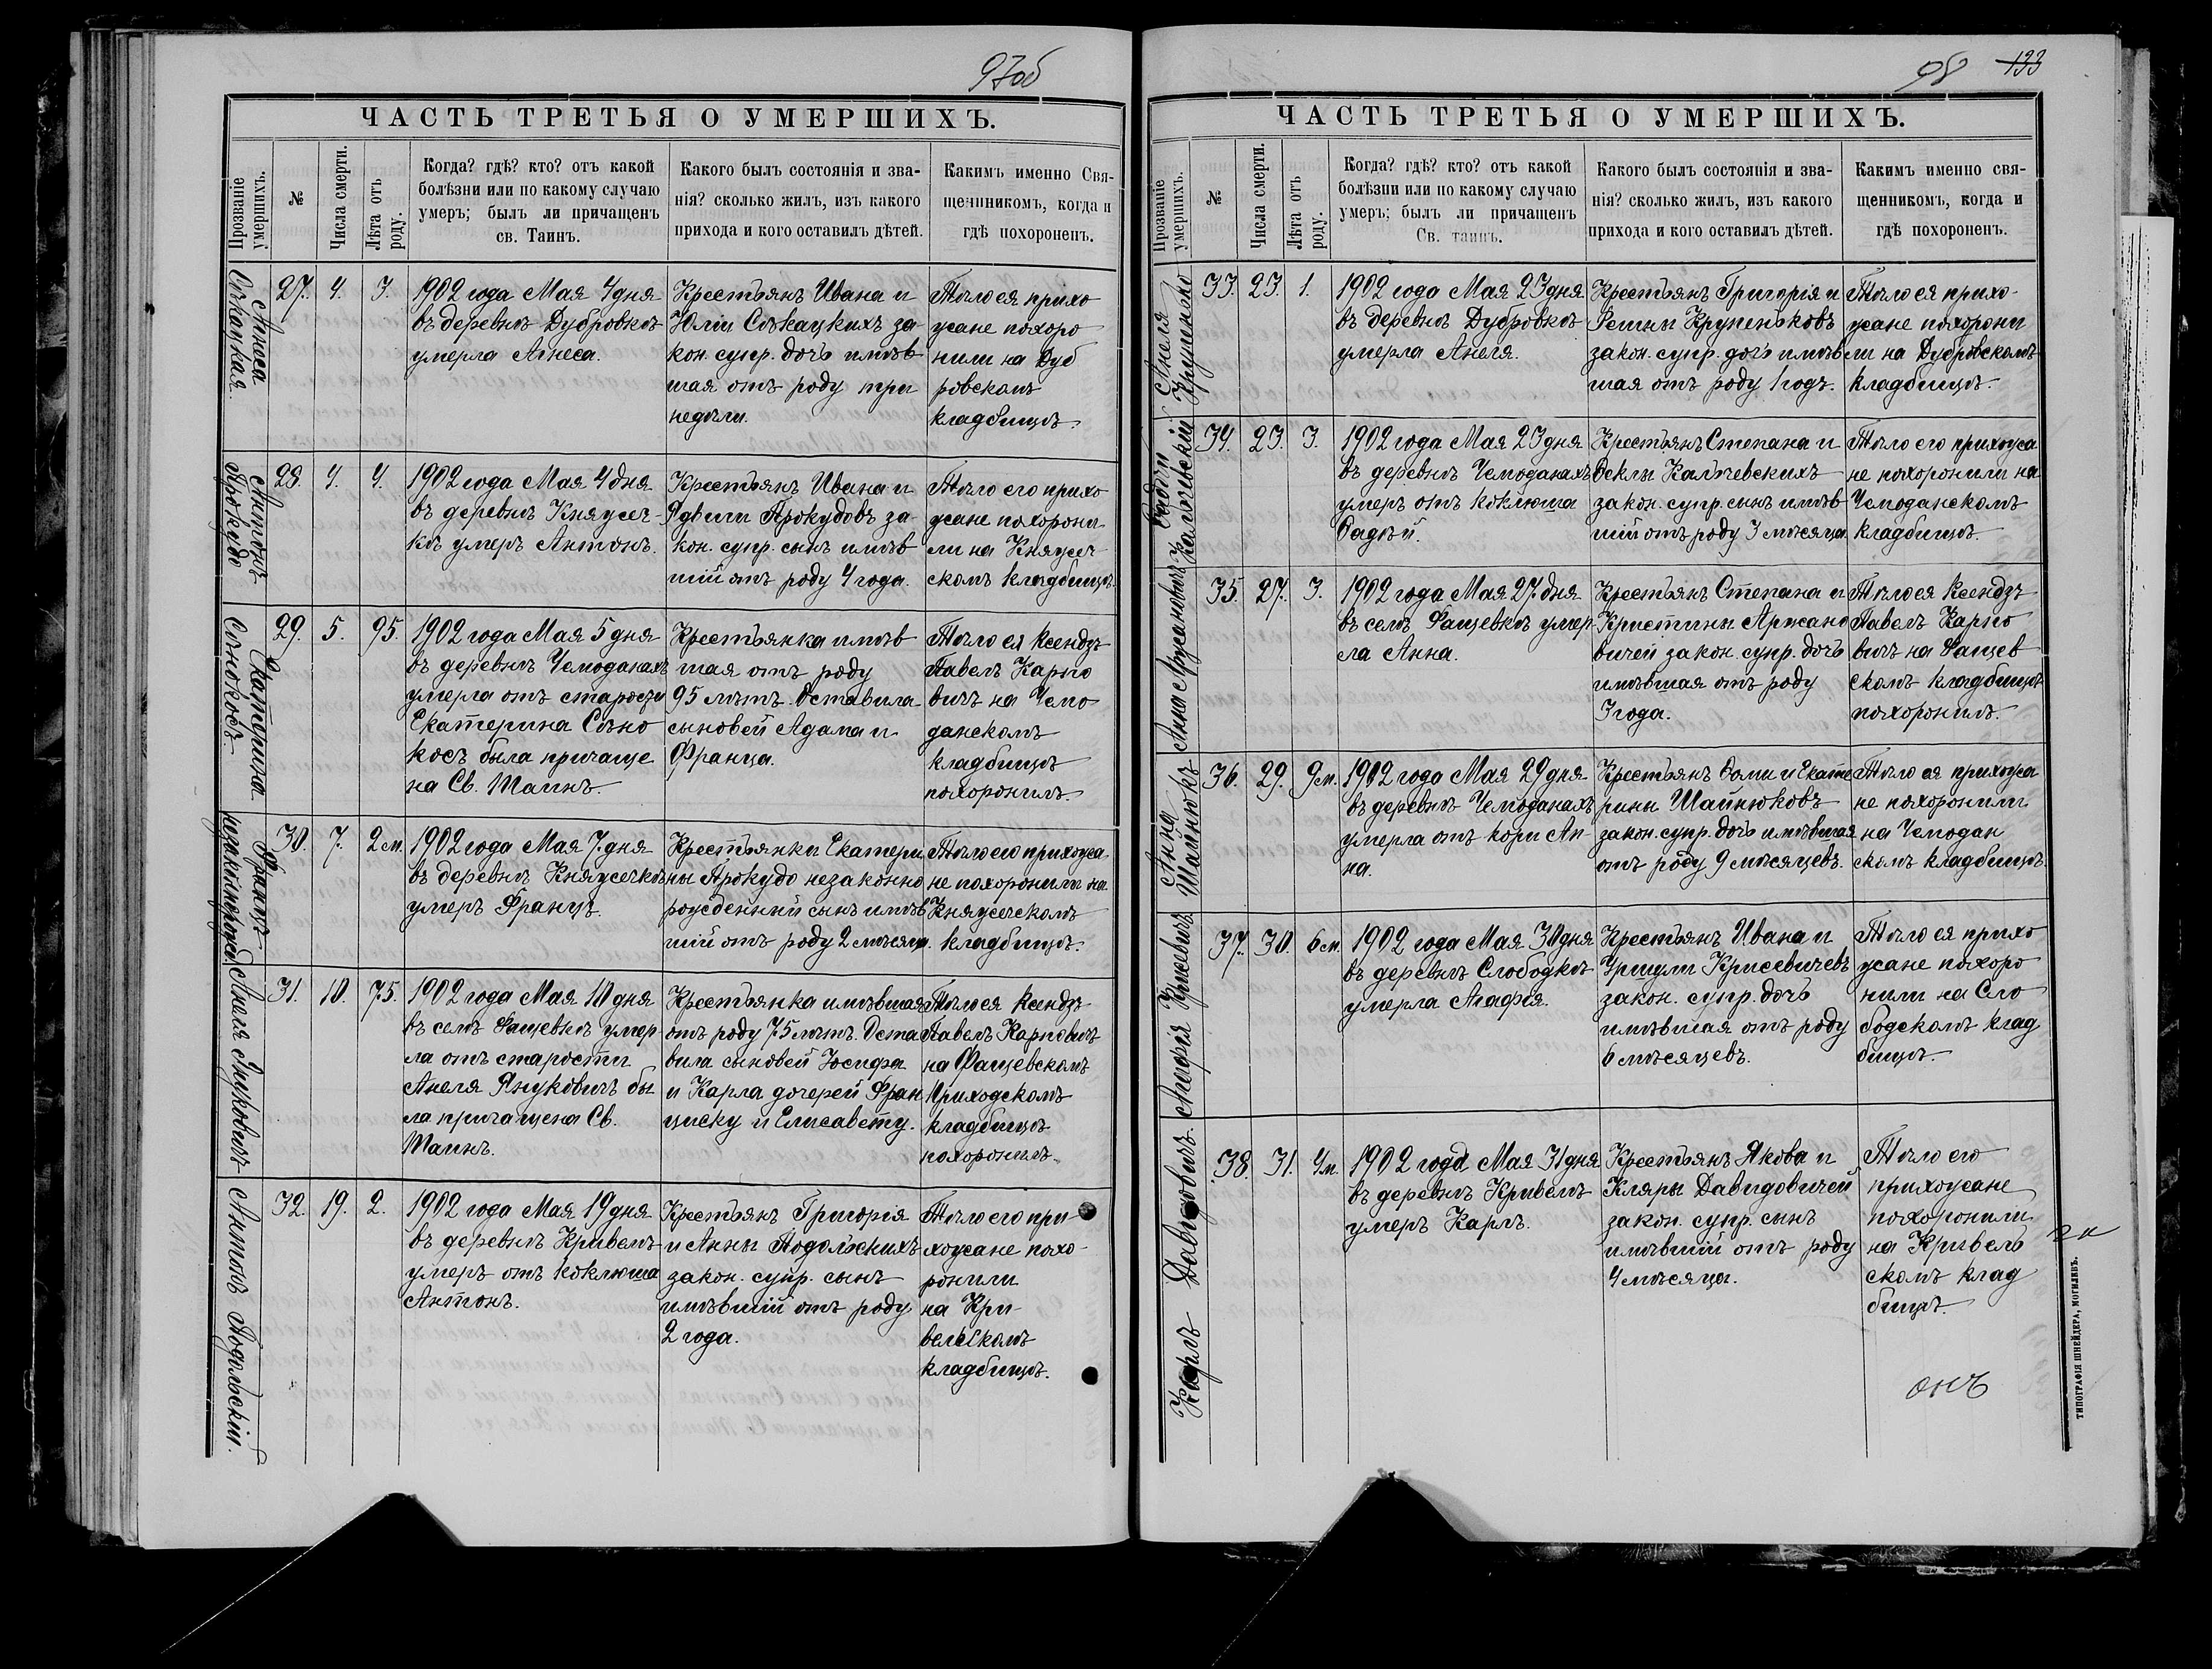 97об
ЧАСТЬ ТРЕТЬЯ О УМЕРШИХЪ.
Прозваніе
умершихъ.
№
Числа смерти.
Лѣта отъ
роду.
Когда? гдѣ? кто? отъ какой
болѣзни или по какому случаю
умеръ; былъ ли причащенъ
св. Таинъ.
Какого былъ состоянія и зва-
нія? сколько жилъ, изъ какого
прихода и кого оставилъ дѣтей.
Какимъ именно Свя-
щенникомъ, когда и
гдѣ похороненъ.
Агнеса
Сѣкацкая.
27.
4.
3.
1902 года Мая 4 дня
въ деревнѣ Дубровкѣ
умерла Агнеса.
Крестьянъ Ивана и
Юліи Сѣкацкихъ за
кон. супр. дочь имѣв
шая отъ роду три
недѣли.
Тѣло ея прихо
жане похоро
нили на Дуб
ровскомъ
кладбищѣ.
Антонъ
Прокудо
28.
4.
4.
1902 года Мая 4 дня
въ деревнѣ Княжеч-
кѣ умеръ Антонъ.
Крестьянъ Ивана и
Ядвиги Прокудовъ за-
кон. супр. сынъ имѣв
шій отъ роду 4 года.
Тѣло его прихо
жане похорони-
ли на Княжеч
скомъ кладбищѣ.
Екатерина
Сѣнокосъ.
29.
5.
95.
1902 года Мая 5 дня
въ деревнѣ Чемоданахъ
умерла отъ старости
Екатерина Сѣно
косъ была причаще
на Св. Таинъ
Крестьянка имѣв
шая отъ роду
95 лѣтъ. Оставила
сыновей Адама и
Франца.
Тѣло ея Ксендзъ
Павелъ Карпо
вичъ на Чемо
данскомъ
кладбищѣ
похоронилъ.
Францъ
незаконнорожд.
30.
7.
2 м.
1902 года Мая 7 дня
въ деревнѣ Княжечкѣ
умеръ Францъ.
Крестьянки Екатери
ны Прокудо незаконно
рожденный сынъ имѣв
шій отъ роду 2 мѣсяца.
Тѣло его прихожа
не похоронили на
Княжечскомъ
кладбищѣ.
Анеля Януковичъ
31.
10.
75.
1902 года Мая 10 дня
въ селѣ Фащевкѣ умер
ла отъ старости
Анеля Януковичъ бы
ла причащена Св.
Таинъ.
Крестьянка имѣвшая
отъ роду 75 лѣтъ. Оста
вила сыновей Іосифа
и Карла дочерей Фран
циску и Елисавету.
Тѣло ея Ксендзъ
Павелъ Карповичъ
на Фащевскомъ
Приходскомъ
кладбищѣ
похоронилъ.
Антонъ Подольскій.
32.
19.
2.
1902 года Мая 19 дня
въ деревнѣ Кривелѣ
умеръ отъ коклюша
Антонъ.
Крестьянъ Григорія
и Анны Подольскихъ
закон. супр. сынъ
имѣвшій отъ роду
2 года.
Тѣло его при
хожане похо-
ронили
на Кри-
вельскомъ
кладбищѣ.
98 133
ЧАСТЬ ТРЕТЬЯ О УМЕРШИХЪ.
Прозваніе
умершихъ.
№
Числа смерти.
Лѣта отъ
роду.
Когда? гдѣ? кто? отъ какой
болѣзни или по какому случаю
умеръ; былъ ли причащенъ
Св. таинъ.
Какого былъ состоянія и зва-
нія? сколько жилъ, изъ какого
прихода и кого оставилъ дѣтей.
Какимъ именно свя-
щенникомъ, когда и
гдѣ похороненъ.
Анеля
Крупенько
33.
23.
1.
1902 года Мая 23 дня
въ деревнѣ Дубровкѣ
умерла Анеля.
Крестьянъ Григорія и
Регины Крупеньковъ
закон. супр. дочь имѣв
шая отъ роду 1 годъ.
Тѣло ея прихо-
жане похорони
ли на Дубровскомъ
кладбищѣ.
Фадѣй
Кальчевскій
34.
23.
3.
1902 года Мая 23 дня
въ деревнѣ Чемоданахъ
умеръ отъ коклюша
Ѳадѣй.
Крестьянъ Степана и
Ѳеклы Кальчевскихъ
закон. супр. сынъ имѣв
шій отъ роду 3 мѣсяца.
Тѣло его прихожа
не похоронили на
Чемоданскомъ
кладбищѣ.
Анна
35.
27.
3.
1902 года Мая 27 дня
въ селѣ Фащевкѣ умер
ла Анна.
Крестьянъ Степана и
Кристины Аржано
вичей закон. супр. дочь
имѣвшая отъ роду
3 года.
Тѣло ея Ксендзъ
Павелъ Карпо
вичъ на Фащев
скомъ кладбищѣ
похоронилъ.
Анна
Шайнюкъ
36.
29.
9 м.
1902 года Мая 29 дня
въ деревнѣ Чемоданахъ
умерла отъ кори Ан-
на.
Крестьянъ Ѳомы и Екате
рины Шайнюковъ
закон. супр. дочь имѣвшая
отъ роду 9 мѣсяцевъ.
Тѣло ея прихожа
не похоронили
на Чемодан
скомъ кладбищѣ.
Агафія Крисевичъ
37.
30.
6 м.
1902 года Мая 30 дня
въ деревнѣ Слободкѣ
умерла Агафія.
Крестьянъ Ивана и
Уршули Крисевичевъ
закон. супр. дочь
имѣвшая отъ роду
6 мѣсяцевъ.
Тѣло ея прихо
жане похоро
нили на Сло
бодскомъ клад
бищѣ.
Карлъ Давидовичъ.
38.
31.
4 м.
1902 года Мая 31 дня
въ деревнѣ Кривелѣ
умеръ Карлъ.
Крестьянъ Якова и
Кляры Давидовичей
закон. супр. сынъ
имѣвшій отъ роду
4 мѣсяца.
Тѣло его
прихожане
похоронили
на Кривель
скомъ клад
бищѣ.
ТИПОГРАФІЯ ШНЕЙДЕРА, МОГИЛЕВЪ.